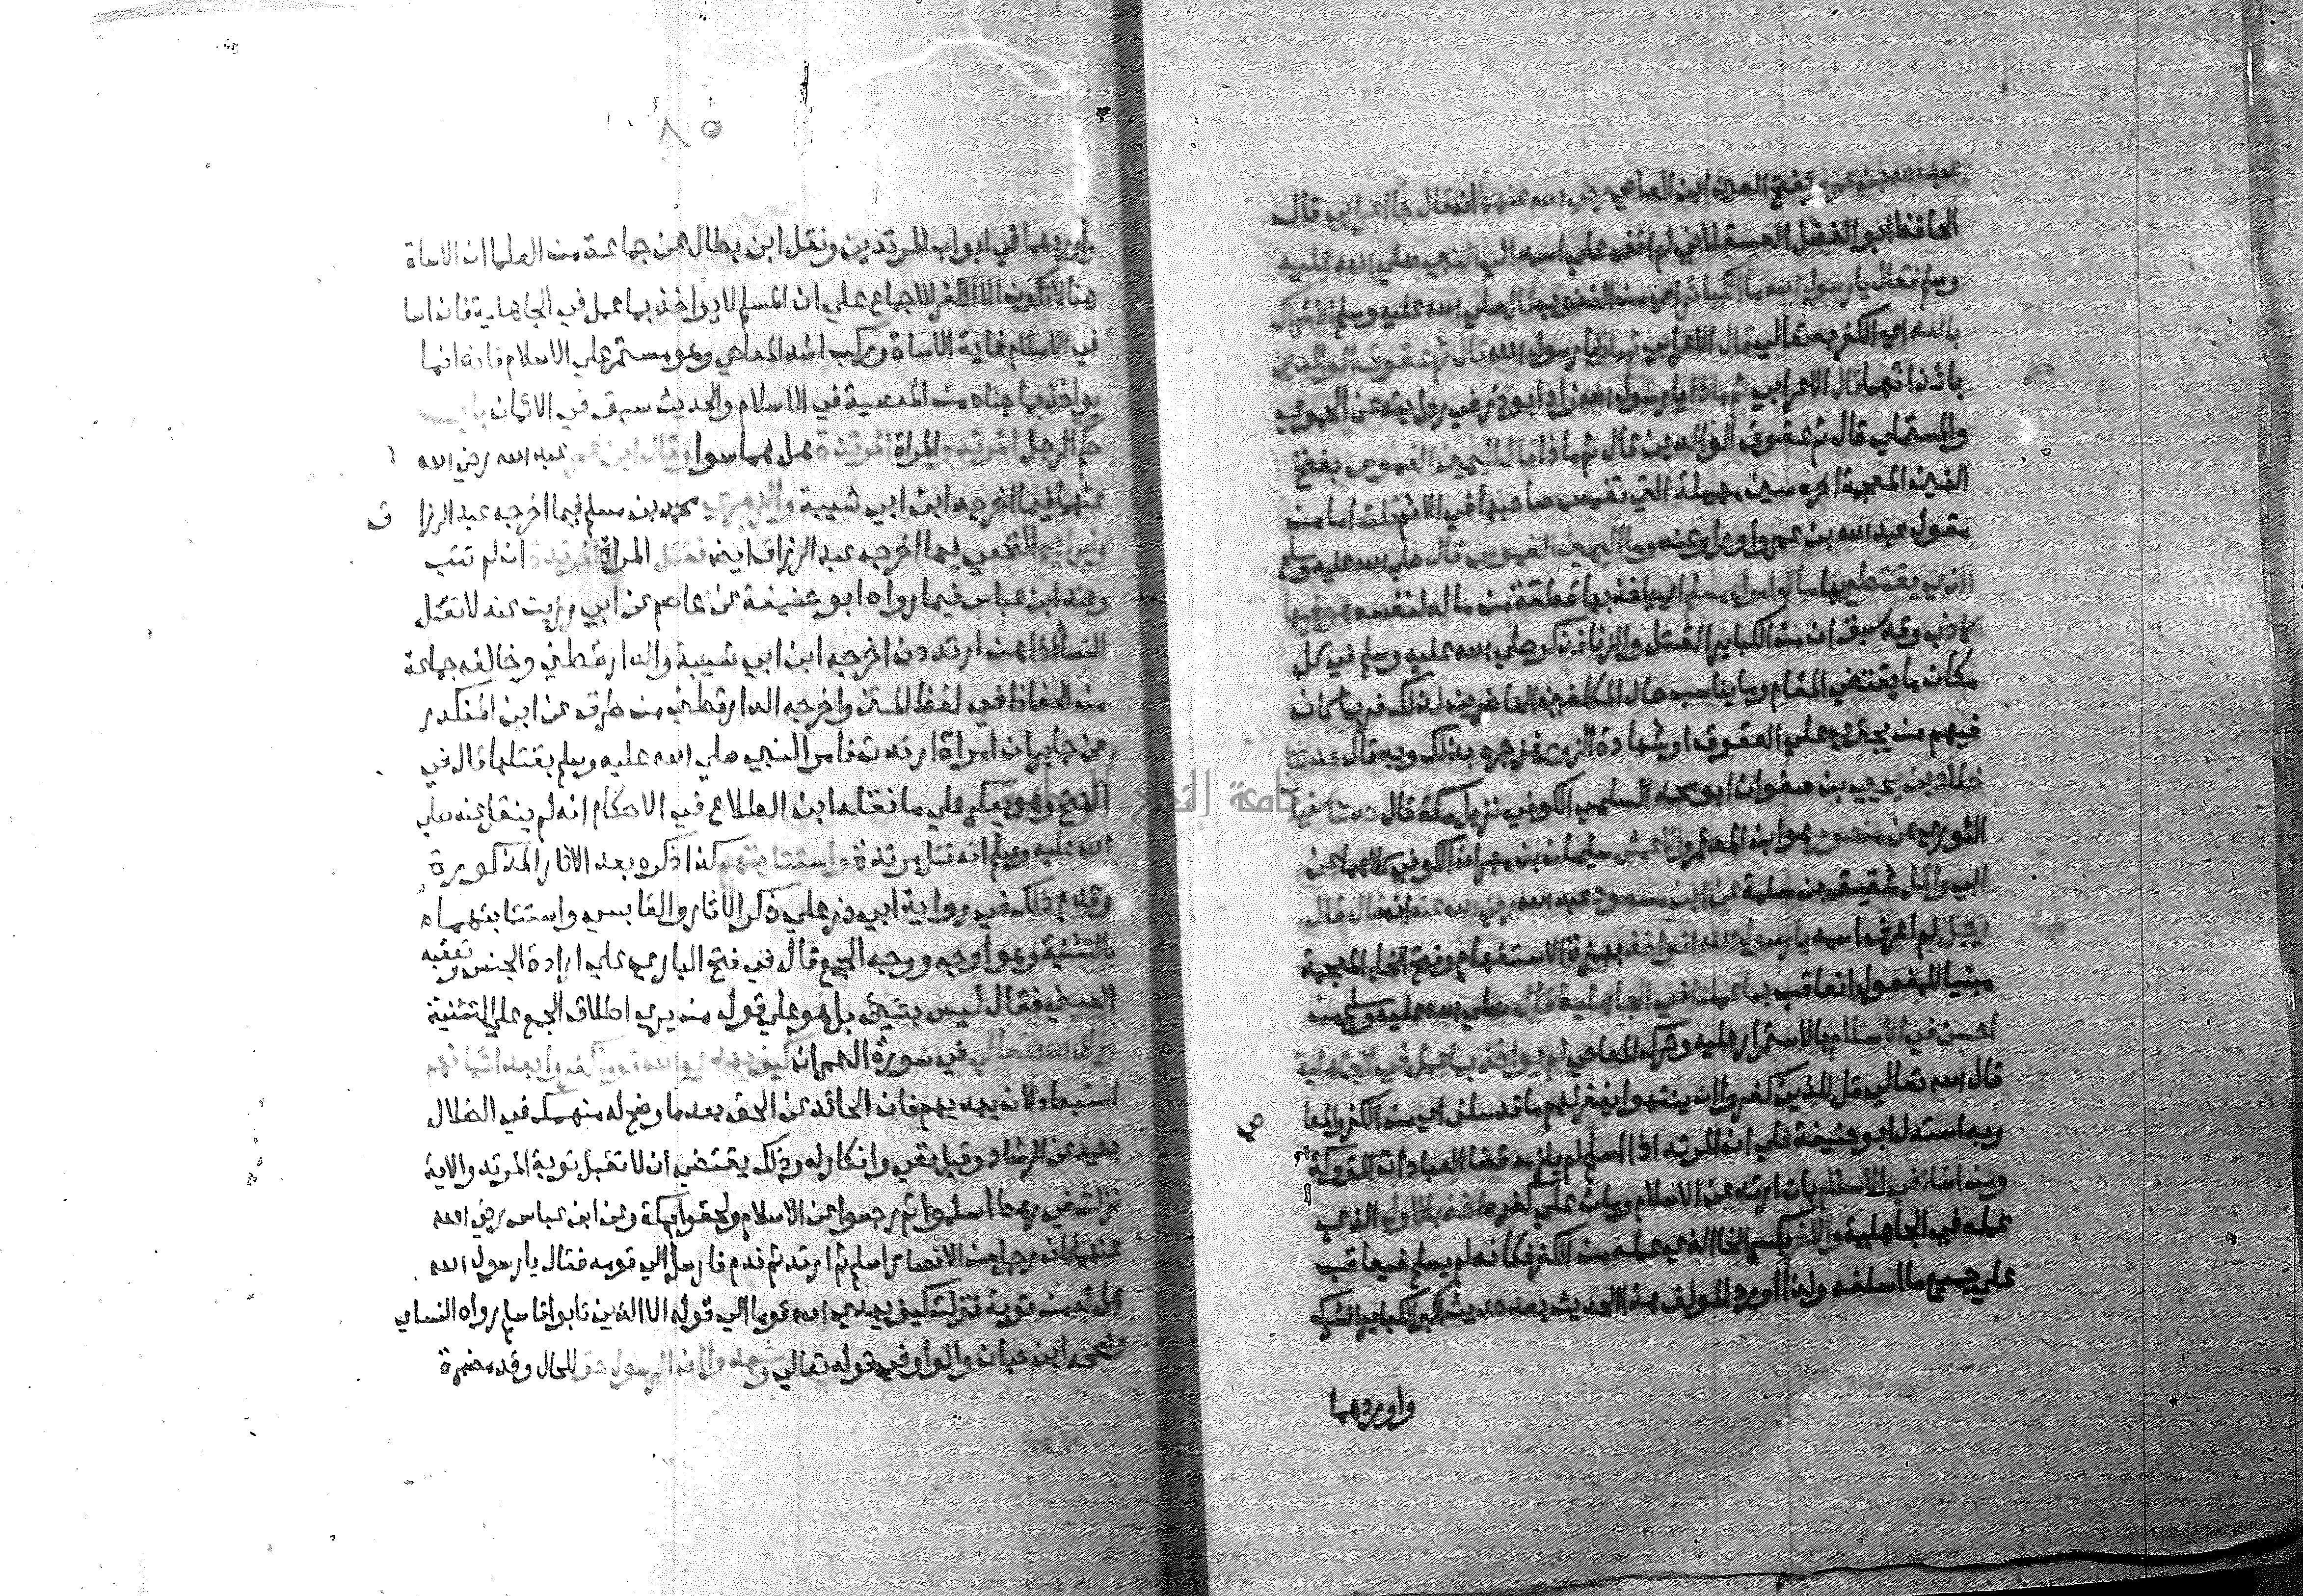 عبد الله بن عمرو بفتح العين ابن العاصي رضي الله عنهما انه قال جا اعرابي قال
الحافظ ابو الفضل العسقلاني لم اقف علي اسمه الي النبي صلي الله عليه
وسلم فقال يا رسول الله ما الكبائر اي من الذنوب قال صلي الله عليه وسلم الاشراك
بالله اي الكفر به تعالي قال الاعرابي ثم ماذا يا رسول الله قال ثم عقوق الوالدين
باذائهما قال الاعرابي ثم ماذا يا رسول الله زاد ابو ذر في روايته عن الحموي
والمستملي قال ثم عقوق الوالدين قال ثم ماذا قال اليمين الغموس بفتح
الغين المعجمة اخره سين مهملة التي تغمس صاحبها في الاثم قلت اما من
مقول عبد الله بن عمرو او راو عنه وما اليمين الغموس قال صلي الله عليه وسلم
الذي يقتطع بها مال امراء مسلم اي ياخذ بها قطعة من ماله لنفسه هو فيها
كاذب وقد سبق ان من الكباير القتل والزنا فذكر صلي الله عليه وسلم في كل
مكان ما يقتضي المقام وما يناسب حال المكلفين الحاضرين لذلك فربما كان
فيهم من يجتري علي العقوق او شهادة الزور فزجره بذلك وبه قال حدثنا
خلاد بن يحيي بن صفوان ابو محمد السلمي الكوفي نزيل مكة قال حدثنا سفيان
الثوري عن منصور هو ابن المعتمر والاعمش سليمان بن مهران الكوفي كلاهما عن
ابي وائل شقيق بن سلمة عن ابن مسعود عبد الله رضي الله عنه انه قال قال
رجل لم اعرف اسمه يا رسول الله انواخذ بهمزة الاستفهام وفتح الخاء المعجمة
مبنيا للمفعول انعاقب بما عملنا في الجاهلية قال صلي الله عليه وسلم من
احسن في الاسلام بالاستمرار عليه وترك المعاصي لم يواخذ بما عمل في الجاهلية
قال الله تعالي قل للذين كفروا ان ينتهوا يغفر لهم ما قد سلف اي من الكفر والمعا
صي
وبه استدل ابو حنيفة علي ان المرتد اذا اسلم لم يلزمه قضا العبادات المتروكة
ومن اسا في الاسلام بان ارتد عن الاسلام ومات علي كفره اخذ بالاول الذي
عمله في الجاهلية والاخر بكسر الخا الذي عمله من الكفر فكانه لم يسلم فيعاقب
علي جميع ما اسلفه ولذا اورد المولف هذا الحديث بعد حديث اكبر الكباير الشرك
واوردهما
٨٥
واوردهما في ابواب المرتدين ونقل ابن بطال عن جماعة من العلما ان الاساة
هنا لا تكون الا الكفر للاجماع علي ان المسلم لا يواخذ بما عمل في الجاهلية فان اسا
في الاسلام غاية الاساة وركب اشد المعاصي وهو مستمر علي الاسلام فانه انما
يواخذ بما جناه من المعصية في الاسلام والحديث سبق في الايمان باب
حكم الرجل المرتد والمراة المرتدة هل هما سوا وقال ابن عمر عبد الله رضي الله
عنهما فيما اخرجه ابن ابي شيبة والزهري محمد بن مسلم فيما اخرجه عبد الرزا
ق
وابراهيم النخعي فيما اخرجه عبد الرزاق ايضا تقتل المراة المرتدة ان لم تتب
وعن ابن عباس فيما رواه ابو حنيفة عن عاصم عن ابي رزين عنه لا تقتل
النسا اذا هن ارتددن اخرجه ابن ابي شيبة والدارقطني وخالفه جماعة
من الحفاظ في لفظ المتن واخرجه الدارقطني من طرق عن ابن المنكدر
عن جابر ان امراة ارتدت فامر النبي صلي الله عليه وسلم بقتلها قال في
الفتح وهو يعكر علي ما نقله ابن الطلاع في الاحكام انه لم ينقل عنه صلي
الله عليه وسلم انه قتل مرتدة واستتابتهم كذا ذكره بعد الاثار المذكورة
وقدم ذلك في رواية ابي ذر علي ذكر الاثار والقابسي واستتابتهما
بالتثنية وهو اوجه ووجه الجمع قال في فتح الباري علي ارادة الجنس وتعقبه
العيني فقال ليس بشيء بل هو علي قول من يري اطلاق الجمع علي التثنية
وقال الله تعالي في سورة ال عمران كيف يهدي الله قوما كفروا بعد ايمانهم
استبعاد لان يهديهم فان الحائد عن الحق بعد ما وضح له منهمك في الضلال
بعيد عن الرشاد وقيل نفي وانكار له وذلك يقتضي ان لا تقبل توبة المرتد والاية
نزلت في رهط اسلموا ثم رجعوا عن الاسلام ولحقوا بمكة وعن ابن عباس رضي الله
عنهما كان رجل من الانصار اسلم ثم ارتد ثم ندم فارسل الي قومه فقال يا رسول الله
هل له من توبة فنزلت كيف يهدي الله قوما الي قوله الا الذين تابوا فاسلم رواه النساي
وصححه ابن حبان والواو في قوله تعالي وشهدوا ان الرسول حق للحال وقد مضمرة